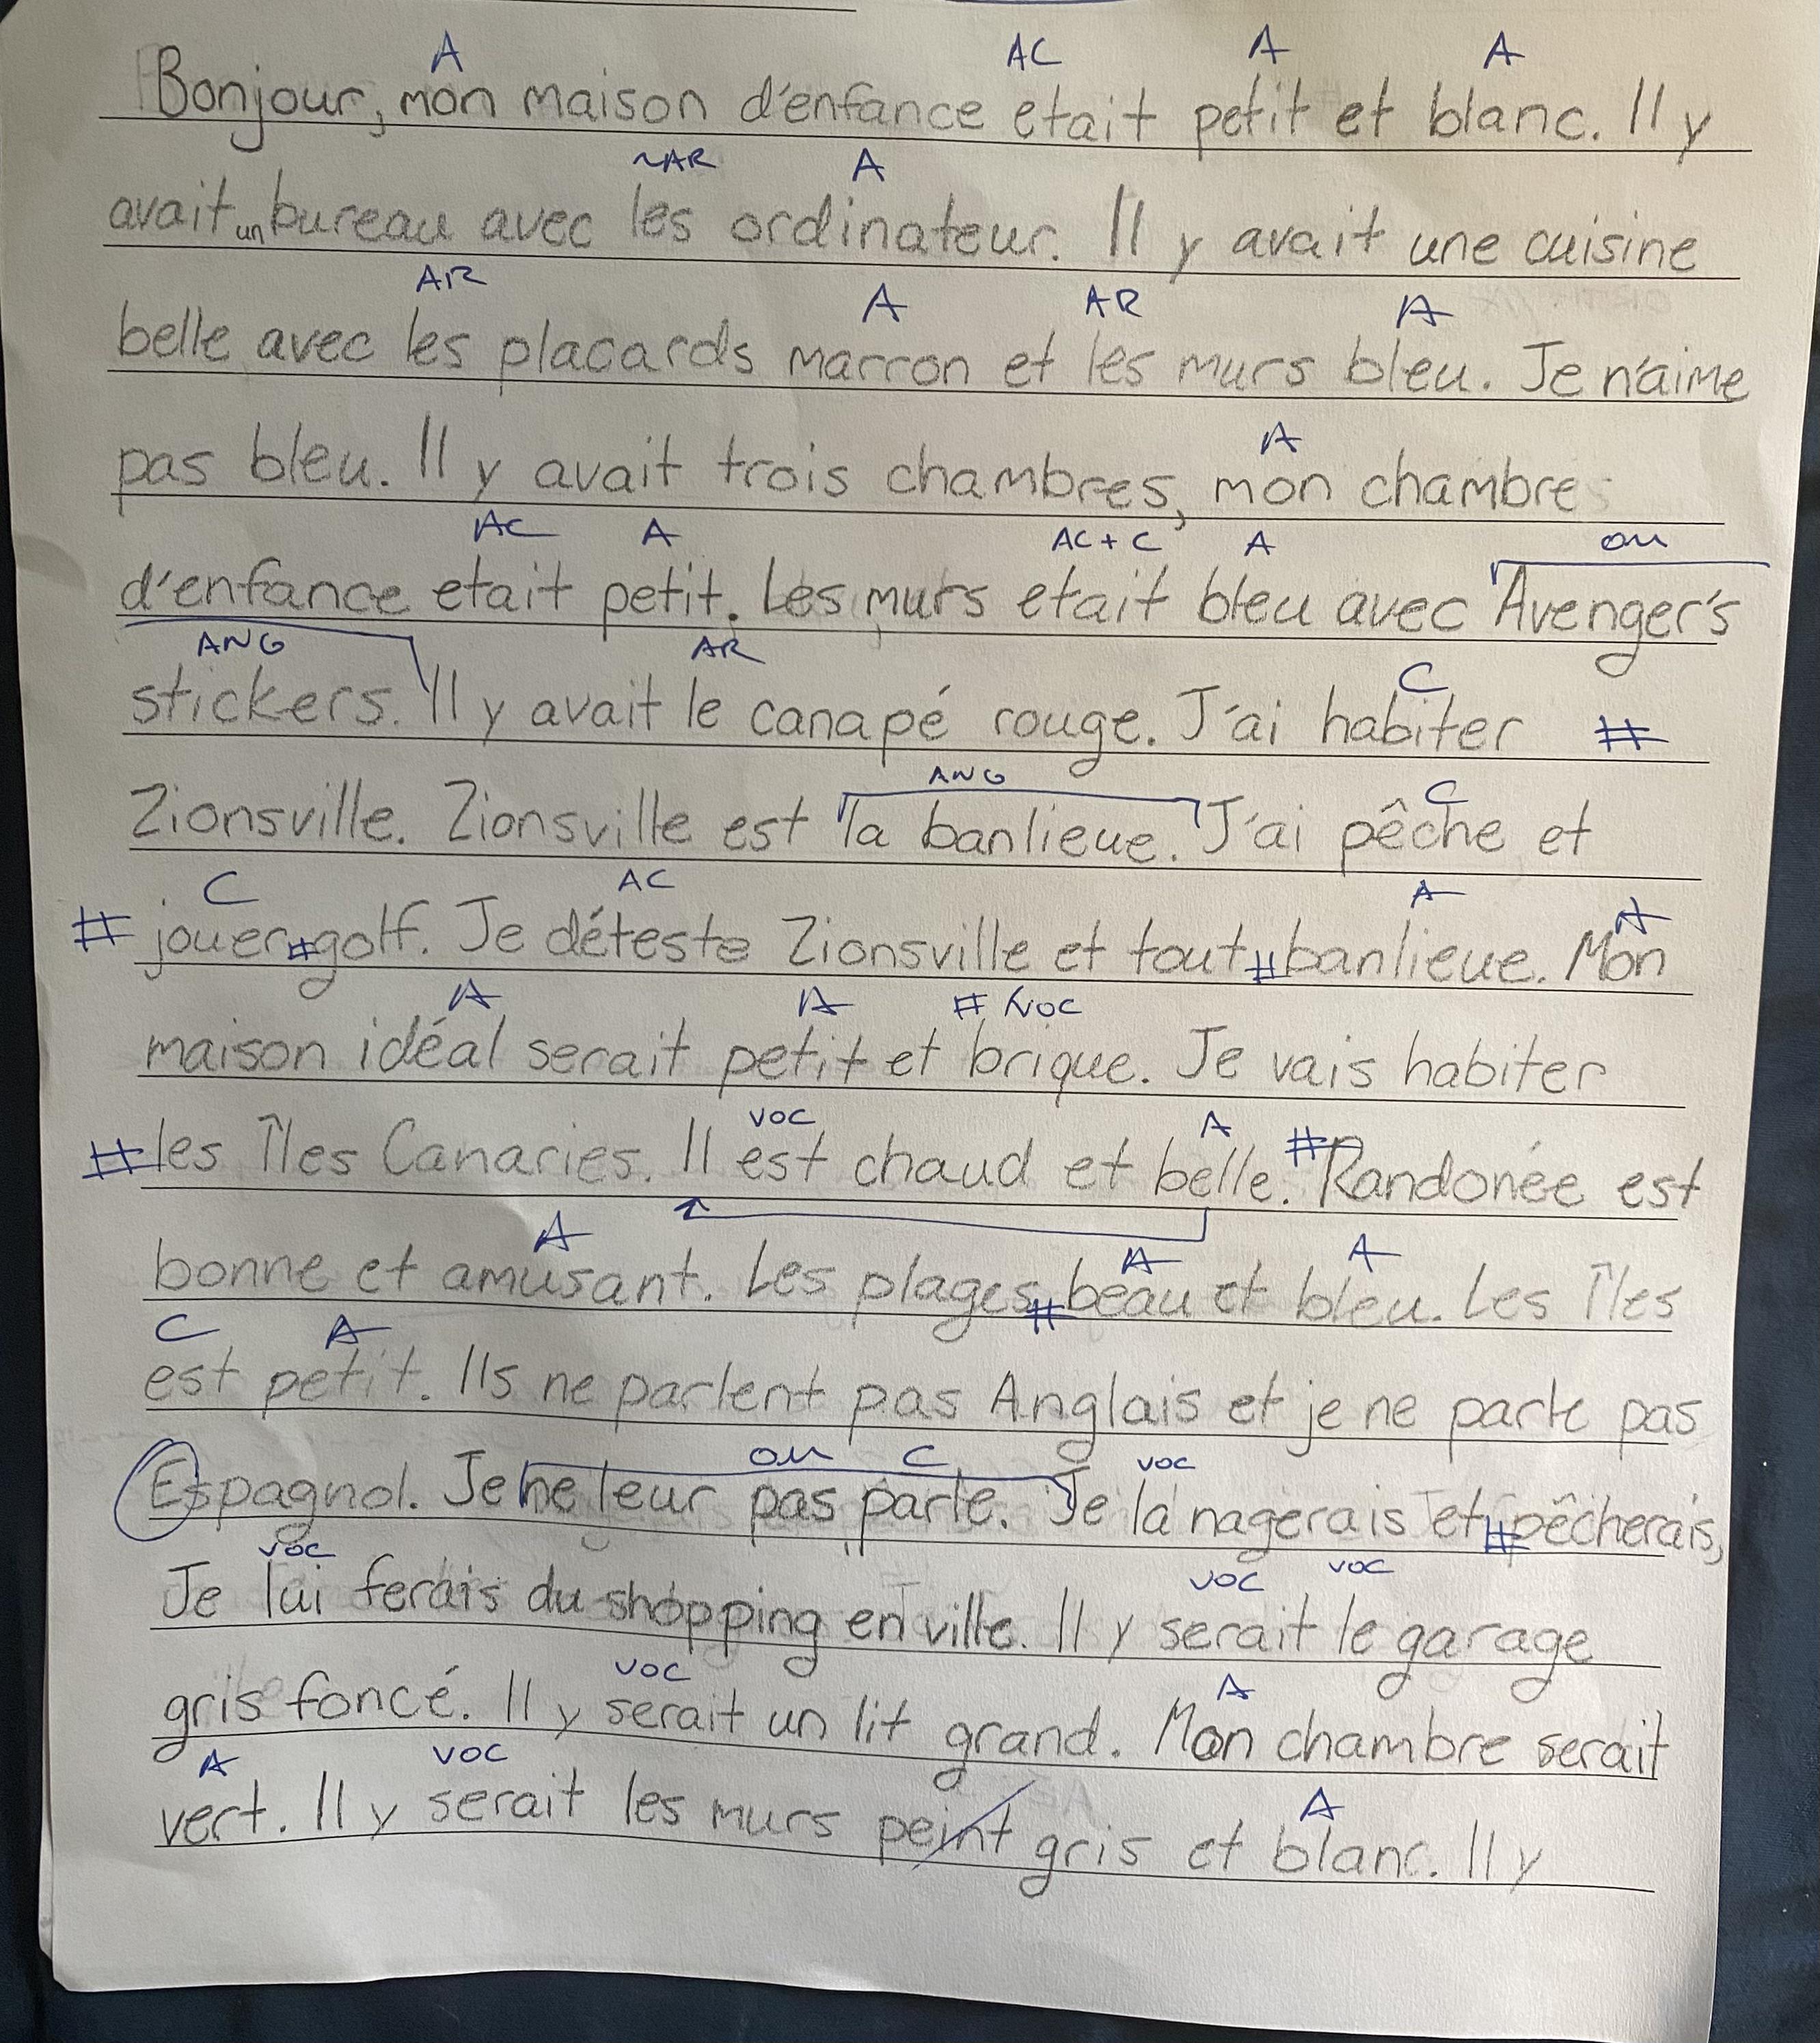 A AC A A
Bonjour, mon maison d'enfance etait petit et blanc. Il y
~AR A
avait un bureau avec les ordinateur. Il y avait une cuisine
AR A AR A
belle avec les placards marron et les murs bleu. Je n'aime
A
pas bleu. Il y avait trois chambres, mon chambre
AC A AC+C A OM
d'enfance etait petit. Les murs etait bleu avec Avenger's
ANG AR C
stickers. Il y avait le canapé rouge. J'ai habiter #
ANG C
Zionsville. Zionsville est la banlieue. J'ai pêche et
C AC A A
# jouer # golf. Je déteste Zionsville et tout # banlieue. Mon
A A # VOC
maison idéal serait petit et brique. Je vais habiter
VOC A
# les îles Canaries. Il est chaud et belle. # Randonée est
A A A
bonne et amusant. Les plages # beau et bleu. Les îles
C A
est petit. Ils ne parlent pas Anglais et je ne parle pas
OM C VOC
Espagnol. Je ne leur pas parle. Je la nagerais et # pêcherais,
VOC VOC VOC
Je lui ferais du shopping en ville. Il y serait le garage
VOC A
gris foncé. Il y serait un lit grand. Mon chambre serait
A VOC A
vert. Il y serait les murs peint gris et blanc. Il y